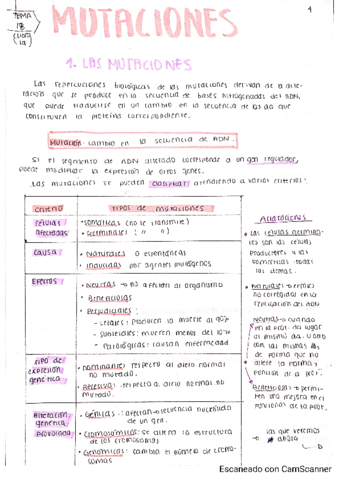 TEMA
18
MUTACIONES
1
1. LAS MUTACIONES
Las repercuciones biológicas de las mutaciones derivan de la alte-
ración que se produce en la secuencia de bases nitrogenadas del ADN,
que puede traducirse en un cambio en la secuencia de los aa que
constituyen la proteína correspondiente.
MUTACIÓN: cambio en la secuencia de ADN.
Si el segmento de ADN alterado corresponde a un gen regulador,
puede modificar la expresión de otros genes.
Las mutaciones se pueden clasificar atendiendo a varios criterios:
criterio
tipos de mutaciones
células
afectadas
somáticas (no se transmite)
germinales ( " " )
causa
Naturales o espontáneas
Inducidas por agentes mutágenos
Efectos
Neutras → no afectan al organismo
Beneficiosas
Perjudiciales:
- letales: producen la muerte al 90%
- subletales: mueren menos del 10%
- Patológicas: causan enfermedad
tipo de
expresión
genética
Dominantes: respecto al alelo normal
no mutado.
Recesiva: respecto a alelo normal no
mutado.
Alteración
genética
provocada
Génicas: afectan secuencia nucleótidos
de un gen.
Cromosómicas: se altera la estructura
de los cromosomas
Genómicas: cambia el número de cromo-
somas
Aclaraciones
las células germina-
les son las células
productoras y las
somáticas todas
las demás.
Naturales → errores
no corregidos en la
replicación del ADN
Neutras → cuando
en la prot. da lugar
al mismo aa. o aa
con las mismas
de forma que no
altere la forma y
función de la prot.
Beneficiosas → permi-
ten una mejora en el
funciones de la prot.
las que veremos
ahora
Escaneado con CamScanner